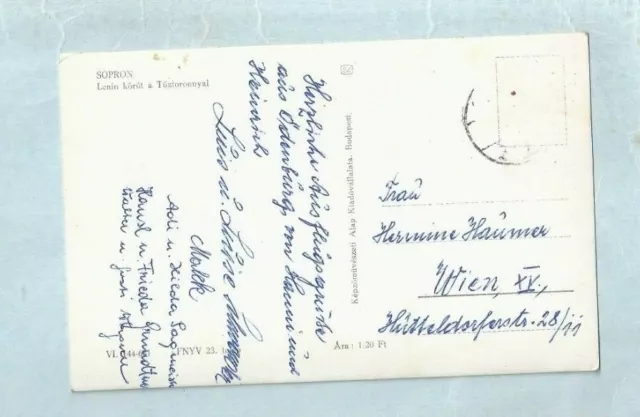 SOPRON
Lenin körút a Tűztoronnyal
Herzliche Ausflugsgrüße
aus Ödenburg, von Hanni und
Heinrich
Luis u. Luise
Malek
Adi u. Hilda
Hansl u. Frieda
u.
Képzőművészeti Alap Kiadóvállalata, Budapest
Frau
Hermine Haumer
Wien, XV.,
Hütteldorferstr. 28/11
FNYV 23.
Ára: 1·20 Ft